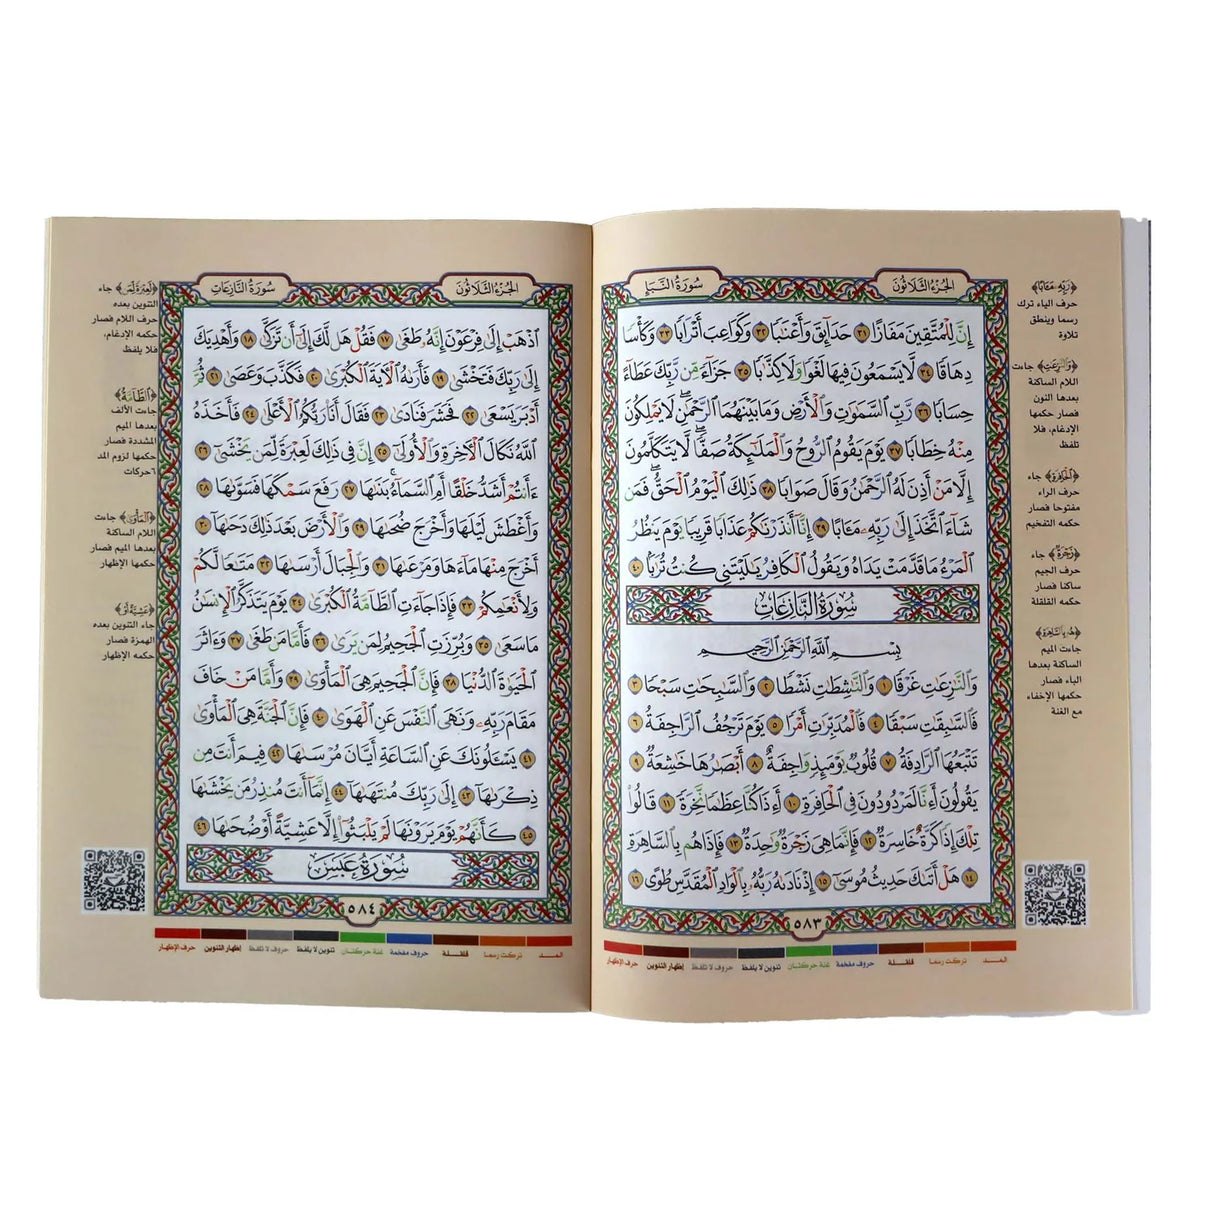 سُورَةُ النَّبَإِ
الجُزءُ الثَّلَاثُونَ
إِنَّ لِلْمُتَّقِينَ مَفَازًا ٣١ حَدَآئِقَ وَأَعْنَٰبًا ٣٢ وَكَوَاعِبَ أَتْرَابًا ٣٣ وَكَأْسًا
دِهَاقًا ٣٤ لَّا يَسْمَعُونَ فِيهَا لَغْوًا وَلَا كِذَّٰبًا ٣٥ جَزَآءً مِّن رَّبِّكَ عَطَآءً
حِسَابًا ٣٦ رَّبِّ ٱلسَّمَٰوَٰتِ وَٱلْأَرْضِ وَمَا بَيْنَهُمَا ٱلرَّحْمَٰنِۖ لَا يَمْلِكُونَ
مِنْهُ خِطَابًا ٣٧ يَوْمَ يَقُومُ ٱلرُّوحُ وَٱلْمَلَٰٓئِكَةُ صَفًّاۖ لَّا يَتَكَلَّمُونَ
إِلَّا مَنْ أَذِنَ لَهُ ٱلرَّحْمَٰنُ وَقَالَ صَوَابًا ٣٨ ذَٰلِكَ ٱلْيَوْمُ ٱلْحَقُّۖ فَمَن
شَآءَ ٱتَّخَذَ إِلَىٰ رَبِّهِۦ مَـَٔابًا ٣٩ إِنَّآ أَنذَرْنَٰكُمْ عَذَابًا قَرِيبًا يَوْمَ يَنظُرُ
ٱلْمَرْءُ مَا قَدَّمَتْ يَدَاهُ وَيَقُولُ ٱلْكَافِرُ يَٰلَيْتَنِى كُنتُ تُرَٰبًۢا ٤٠
سُورَةُ النَّازِعَاتِ
بِسْمِ ٱللَّهِ ٱلرَّحْمَٰنِ ٱلرَّحِيمِ
وَٱلنَّٰزِعَٰتِ غَرْقًا ١ وَٱلنَّٰشِطَٰتِ نَشْطًا ٢ وَٱلسَّٰبِحَٰتِ سَبْحًا ٣
فَٱلسَّٰبِقَٰتِ سَبْقًا ٤ فَٱلْمُدَبِّرَٰتِ أَمْرًا ٥ يَوْمَ تَرْجُفُ ٱلرَّاجِفَةُ ٦
تَتْبَعُهَا ٱلرَّادِفَةُ ٧ قُلُوبٌ يَوْمَئِذٍ وَاجِفَةٌ ٨ أَبْصَٰرُهَا خَٰشِعَةٌ ٩
يَقُولُونَ أَءِنَّا لَمَرْدُودُونَ فِى ٱلْحَافِرَةِ ١٠ أَءِذَا كُنَّا عِظَٰمًا نَّخِرَةً ١١ قَالُوا۟
تِلْكَ إِذًا كَرَّةٌ خَاسِرَةٌ ١٢ فَإِنَّمَا هِىَ زَجْرَةٌ وَٰحِدَةٌ ١٣ فَإِذَا هُم بِٱلسَّاهِرَةِ
١٤ هَلْ أَتَىٰكَ حَدِيثُ مُوسَىٰٓ ١٥ إِذْ نَادَىٰهُ رَبُّهُۥ بِٱلْوَادِ ٱلْمُقَدَّسِ طُوًى ١٦
٥٨٣
﴿رَبِّهِۦ مَـَٔابًا﴾
حرف الياء ترك
رسما وينطق
تلاوة
﴿وَٱلنَّٰزِعَٰتِ﴾ جاءت
اللام الساكنة
بعدها النون
فصار حكمها
الإدغام، فلا
تلفظ
﴿ٱلْحَافِرَةِ﴾ جاء
حرف الراء
مفتوحا فصار
حكمه التفخيم
﴿زَجْرَةٌ﴾ جاء
حرف الجيم
ساكنا فصار
حكمه القلقلة
﴿هُم بِٱلسَّاهِرَةِ﴾
جاءت الميم
الساكنة بعدها
الباء فصار
حكمها الإخفاء
مع الغنة
المـــد تركت رسما قلقـلـة حروف مفخمة غنة حركتان تنوين لا يلفظ حروف لا تلفظ إظهار التنوين حرف الإظهار
سُورَةُ النَّازِعَاتِ
الجُزءُ الثَّلَاثُونَ
ٱذْهَبْ إِلَىٰ فِرْعَوْنَ إِنَّهُۥ طَغَىٰ ١٧ فَقُلْ هَل لَّكَ إِلَىٰٓ أَن تَزَكَّىٰ ١٨ وَأَهْدِيَكَ
إِلَىٰ رَبِّكَ فَتَخْشَىٰ ١٩ فَأَرَىٰهُ ٱلْءَايَةَ ٱلْكُبْرَىٰ ٢٠ فَكَذَّبَ وَعَصَىٰ ٢١ ثُمَّ
أَدْبَرَ يَسْعَىٰ ٢٢ فَحَشَرَ فَنَادَىٰ ٢٣ فَقَالَ أَنَا۠ رَبُّكُمُ ٱلْأَعْلَىٰ ٢٤ فَأَخَذَهُ
ٱللَّهُ نَكَالَ ٱلْءَاخِرَةِ وَٱلْأُولَىٰٓ ٢٥ إِنَّ فِى ذَٰلِكَ لَعِبْرَةً لِّمَن يَخْشَىٰٓ ٢٦
ءَأَنتُمْ أَشَدُّ خَلْقًا أَمِ ٱلسَّمَآءُۚ بَنَىٰهَا ٢٧ رَفَعَ سَمْكَهَا فَسَوَّىٰهَا ٢٨
وَأَغْطَشَ لَيْلَهَا وَأَخْرَجَ ضُحَىٰهَا ٢٩ وَٱلْأَرْضَ بَعْدَ ذَٰلِكَ دَحَىٰهَآ ٣٠
أَخْرَجَ مِنْهَا مَآءَهَا وَمَرْعَىٰهَا ٣١ وَٱلْجِبَالَ أَرْسَىٰهَا ٣٢ مَتَٰعًا لَّكُمْ
وَلِأَنْعَٰمِكُمْ ٣٣ فَإِذَا جَآءَتِ ٱلطَّآمَّةُ ٱلْكُبْرَىٰ ٣٤ يَوْمَ يَتَذَكَّرُ ٱلْإِنسَٰنُ
مَا سَعَىٰ ٣٥ وَبُرِّزَتِ ٱلْجَحِيمُ لِمَن يَرَىٰ ٣٦ فَأَمَّا مَن طَغَىٰ ٣٧ وَءَاثَرَ
ٱلْحَيَوٰةَ ٱلدُّنْيَا ٣٨ فَإِنَّ ٱلْجَحِيمَ هِىَ ٱلْمَأْوَىٰ ٣٩ وَأَمَّا مَنْ خَافَ
مَقَامَ رَبِّهِۦ وَنَهَى ٱلنَّفْسَ عَنِ ٱلْهَوَىٰ ٤٠ فَإِنَّ ٱلْجَنَّةَ هِىَ ٱلْمَأْوَىٰ
٤١ يَسْـَٔلُونَكَ عَنِ ٱلسَّاعَةِ أَيَّانَ مُرْسَىٰهَا ٤٢ فِيمَ أَنتَ مِن
ذِكْرَىٰهَآ ٤٣ إِلَىٰ رَبِّكَ مُنتَهَىٰهَآ ٤٤ إِنَّمَآ أَنتَ مُنذِرُ مَن يَخْشَىٰهَا
٤٥ كَأَنَّهُمْ يَوْمَ يَرَوْنَهَا لَمْ يَلْبَثُوٓا۟ إِلَّا عَشِيَّةً أَوْ ضُحَىٰهَا ٤٦
سُورَةُ عَبَسَ
٥٨٤
﴿لَعِبْرَةً لِّمَن﴾ جاء
التنوين بعده
حرف اللام فصار
حكمه الإدغام،
فلا يلفظ
﴿ٱلطَّآمَّةُ﴾
جاءت الألف
بعدها الميم
المشددة فصار
حكمها لزوم المد
٦ حركات
﴿ٱلْمَأْوَىٰ﴾ جاءت
اللام الساكنة
بعدها الميم فصار
حكمها الإظهار
﴿عَشِيَّةً أَوْ﴾
جاء التنوين بعده
الهمزة فصار
حكمه الإظهار
المـــد تركت رسما قلقـلـة حروف مفخمة غنة حركتان تنوين لا يلفظ حروف لا تلفظ إظهار التنوين حرف الإظهار